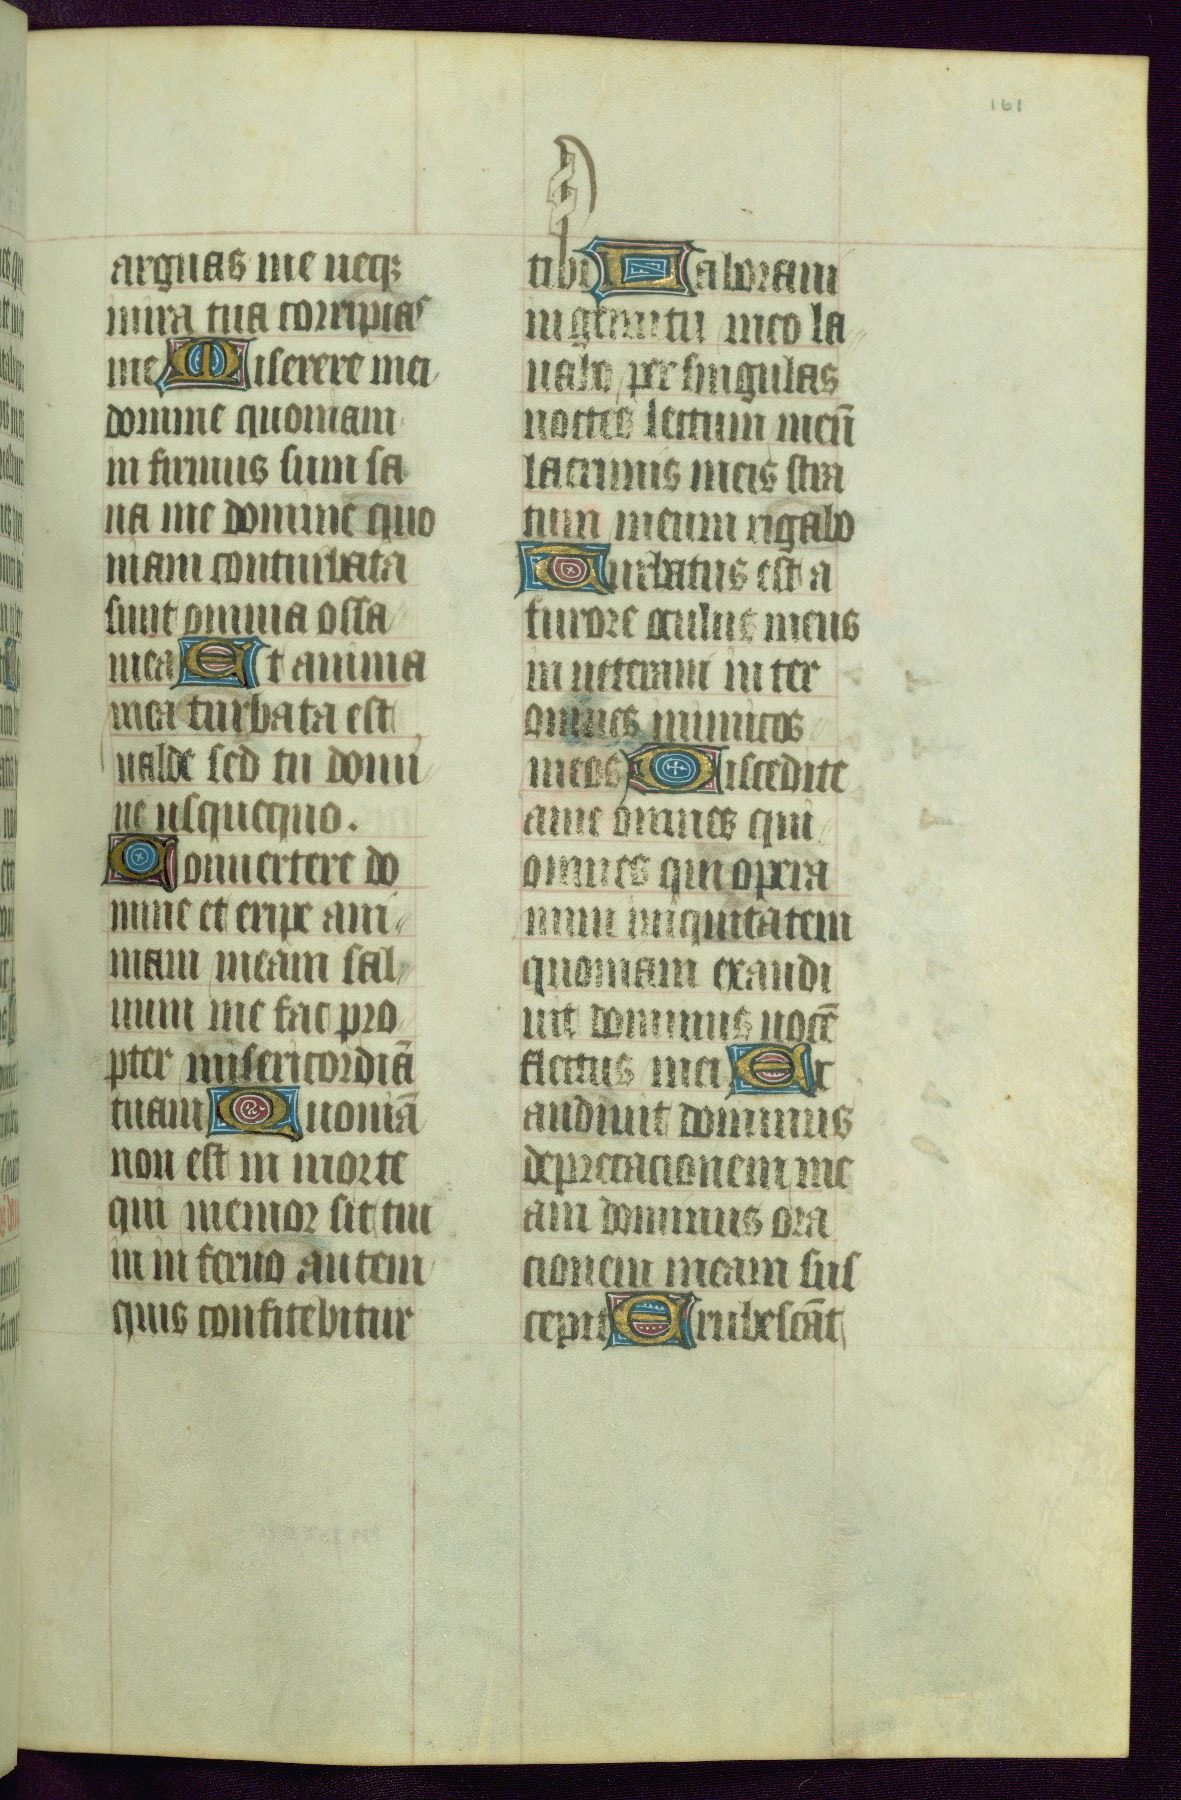 161
arguas me neq;
in ira tua corripias
me Miserere mei
domine quoniam
in firmus sum sa
na me domine quo
niam conturbata
sunt omnia ossa
mea Et anima
mea turbata est
ualde sed tu domi
ne usquequo.
Conuertere do
mine et eripe ani
mam meam sal
uum me fac pro
pter misericordiā
tuam Quoniā
non est in morte
qui memor sit tui
in in ferno autem
quis confitebitur
tibi Laboraui
in gemitu meo la
uabo per singulas
noctes lectum meū
lacrimis meis stra
tum meum rigabo
Turbatus est a
furore oculus meus
in ueteraui in ter
omnes inimicos
meos Discedite
a me omnes qui
omnes qui opera
mini iniquitatem
quoniam exaudi
uit dominus uocē
fletus mei Ex
audiuit dominus
deprecacionem me
am dominus ora
cionem meam sus
cepit Erubescāt